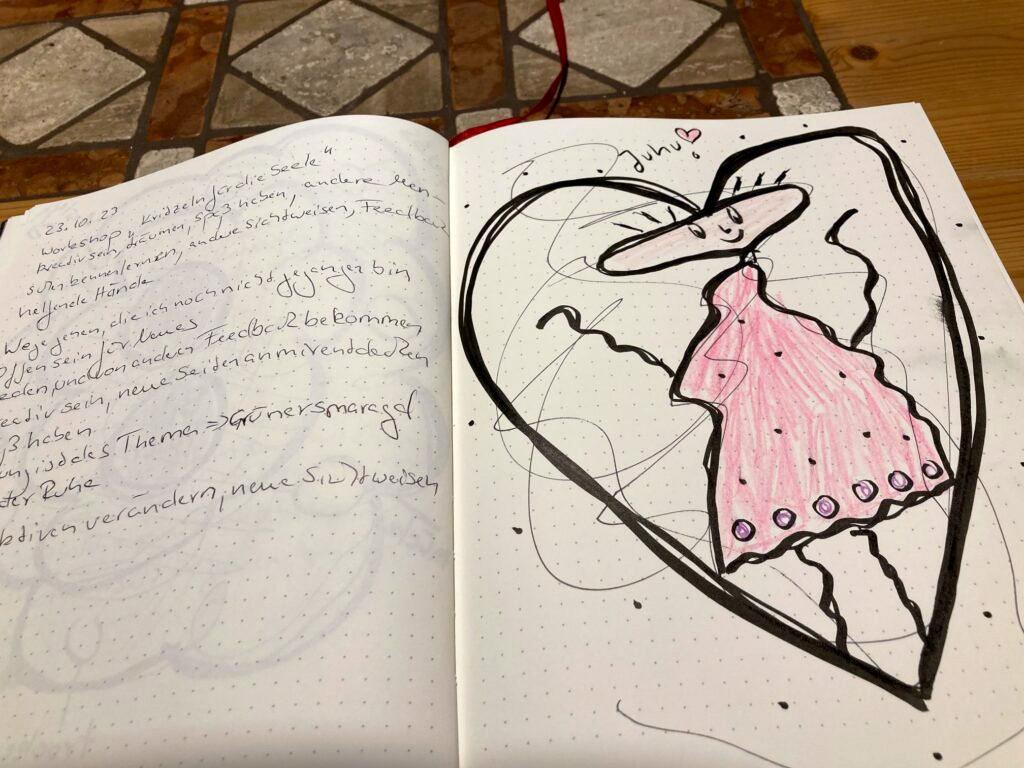 23.10.23
Workshop "Kritzeln für die Seele"
kreativ sein, träumen, Spaß haben, andere Men-
schen kennenlernen, andere Sichtweisen, Feedback
helfende Hände
Wege gehen, die ich noch nicht gegangen bin
offen sein für Neues
reden und von andern Feedback bekommen
kreativ sein, neue Seiten an mir entdecken
haben
ist das Thema => Grüner Smaragd
Ruhe
verändern, neue Sichtweisen
Juhu!